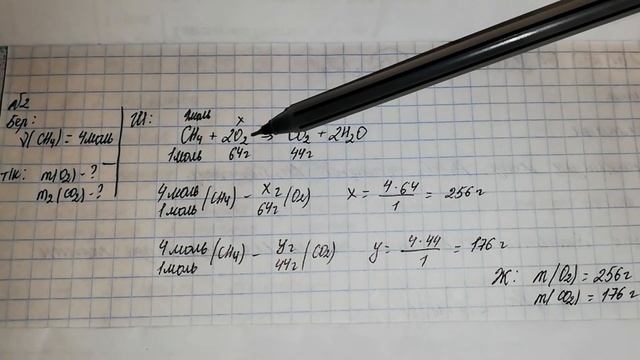 №2
Бер:
ν(CH₄) = 4моль
т/к: m(O₂) - ?
m₂(CO₂) - ?
Ш:
4моль x
CH₄ + 2O₂ → CO₂ + 2H₂O
1моль 64г 44г
4моль/1моль (CH₄) - xг/64г (O₂) x = 4·64/1 = 256г
4моль/1моль (CH₄) - yг/44г (CO₂) y = 4·44/1 = 176г
Ж: m(O₂) = 256г
m(CO₂) = 176г